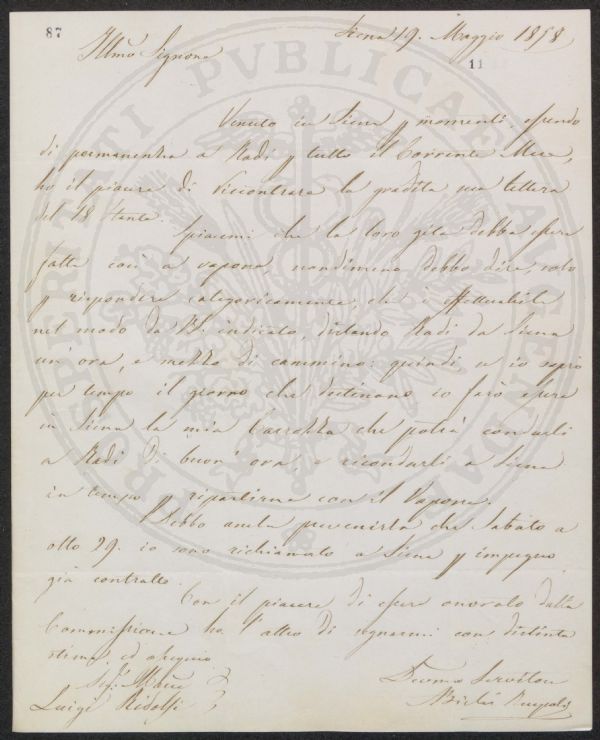 87
Siena 19. Maggio 1858
11
Illmo Signore
Venuto in Siena p momenti, essendo
di permanenza a Radi p tutto il Corrente Mese,
ho il piacere di riscontrare la gradita sua lettera
del 18 stante.
Spiacemi che la loro gita debba essere
fatta così a vapore, nondimeno debbo dire, solo
p rispondere categoricamente, che è effettuabile
nel modo da Lei indicato, distando Radi da Siena
un' ora, e mezzo di cammino: quindi se io saprò
per tempo il giorno che destinano io farò essere
in Siena la mia Carrozza che potrà condurli
a Radi di buon' ora, e ricondurli a Siena
in tempo p ripartirne con il Vapore.
Debbo anche prevenirla che Sabato a
otto 29. io sono richiamato a Siena p impegno
già contratto.
Con il piacere di essere onorato dalla
Commissione ho l'altro di segnarmi con distinta
stima, ed ossequio
Sig. Marce
Luigi Ridolfi
Devmo Servitore
PROSPERITATI PUBLICAE AUGENDAE